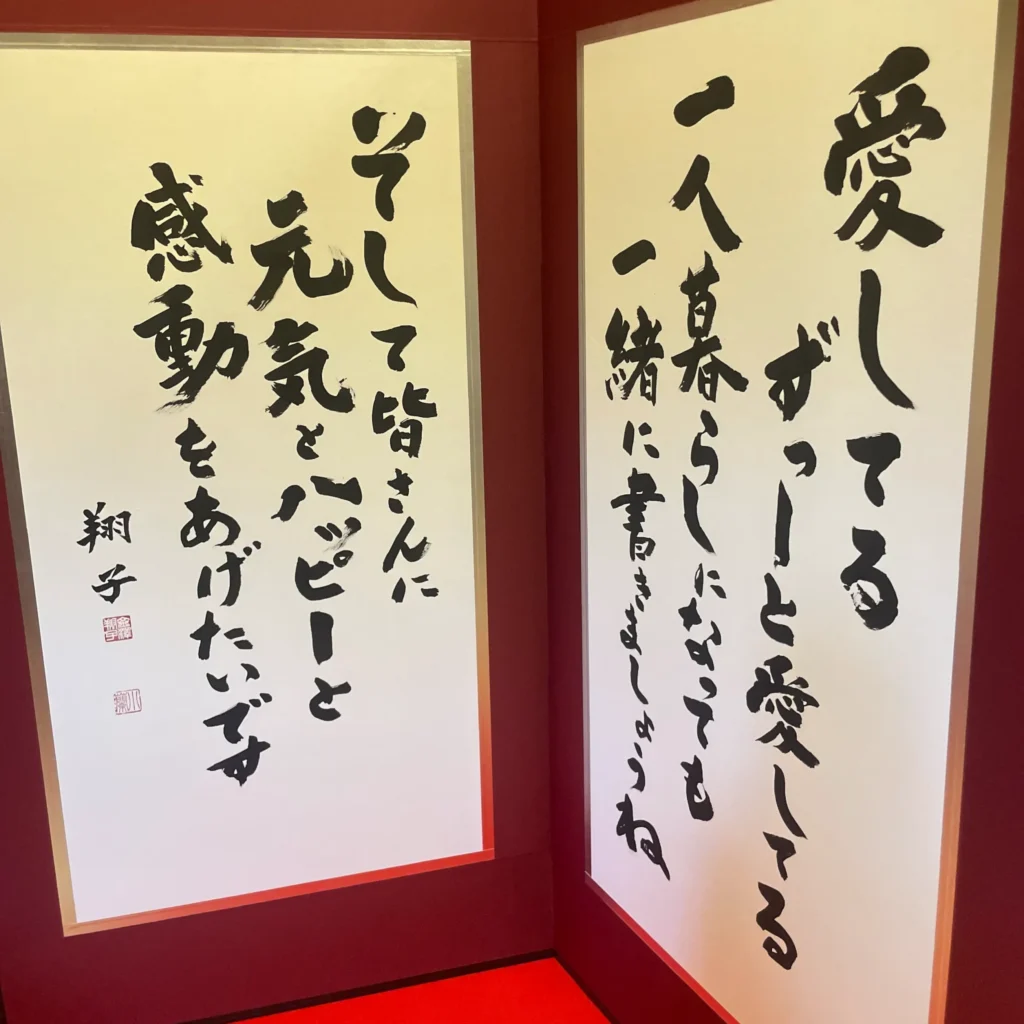 愛してる
ずっーと愛してる
一人暮らしになっても
一緒に書きましょうね
そして皆さんに
元気とハッピーと
感動をあげたいです
翔子